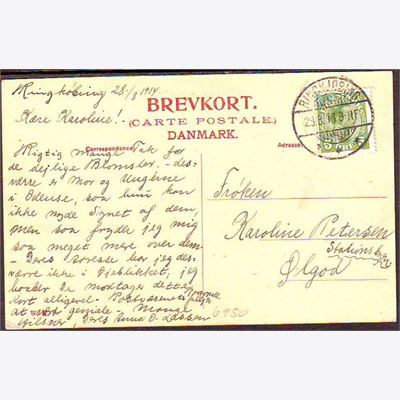 Ringkøbing 28/8 1914
Kære Karoline! -
BREVKORT.
(CARTE POSTALE.)
DANMARK.
Correspondance
Adresse:
RINGKJØBING
Rigtig mange Tak for
de dejlige Blomster, - des-
værre er Mor og
i Odense, saa hun kan
ikke nyde Synet af dem,
men saa fryder jeg mig
saa meget mere over dem -
- Deres Adresse har jeg des-
værre ikke i Øjeblikket, jeg
haaber De modtager dette
Kort alligevel - Postvæsenet plejer
at være geniale - Mange
Hilsner, Deres Anna O. Lassen
6950
Frøken
Karoline Petersen
Stationsbyen
Ølgod